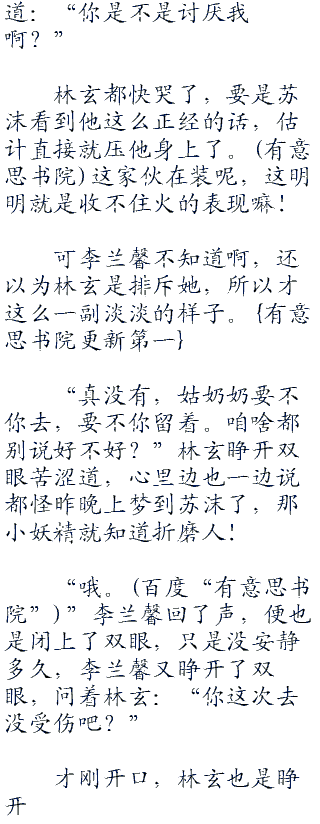 道：“你是不是讨厌我
啊？”
林玄都快哭了，要是苏
沫看到他这么正经的话，估
计直接就压他身上了。(有意
思书院)这家伙在装呢，这明
明就是收不住火的表现嘛！
可李兰馨不知道啊，还
以为林玄是排斥她，所以才
这么一副淡淡的样子。{有意
思书院更新第一}
“真没有，姑奶奶要不
你去，要不你留着。咱啥都
别说好不好？”林玄睁开双
眼苦涩道，心里边也一边说
都怪昨晚上梦到苏沫了，那
小妖精就知道折磨人！
“哦。(百度“有意思书
院”)”李兰馨回了声，便也
是闭上了双眼，只是没安静
多久，李兰馨又睁开了双
眼，问着林玄：“你这次去
没受伤吧？”
才刚开口，林玄也是睁
开